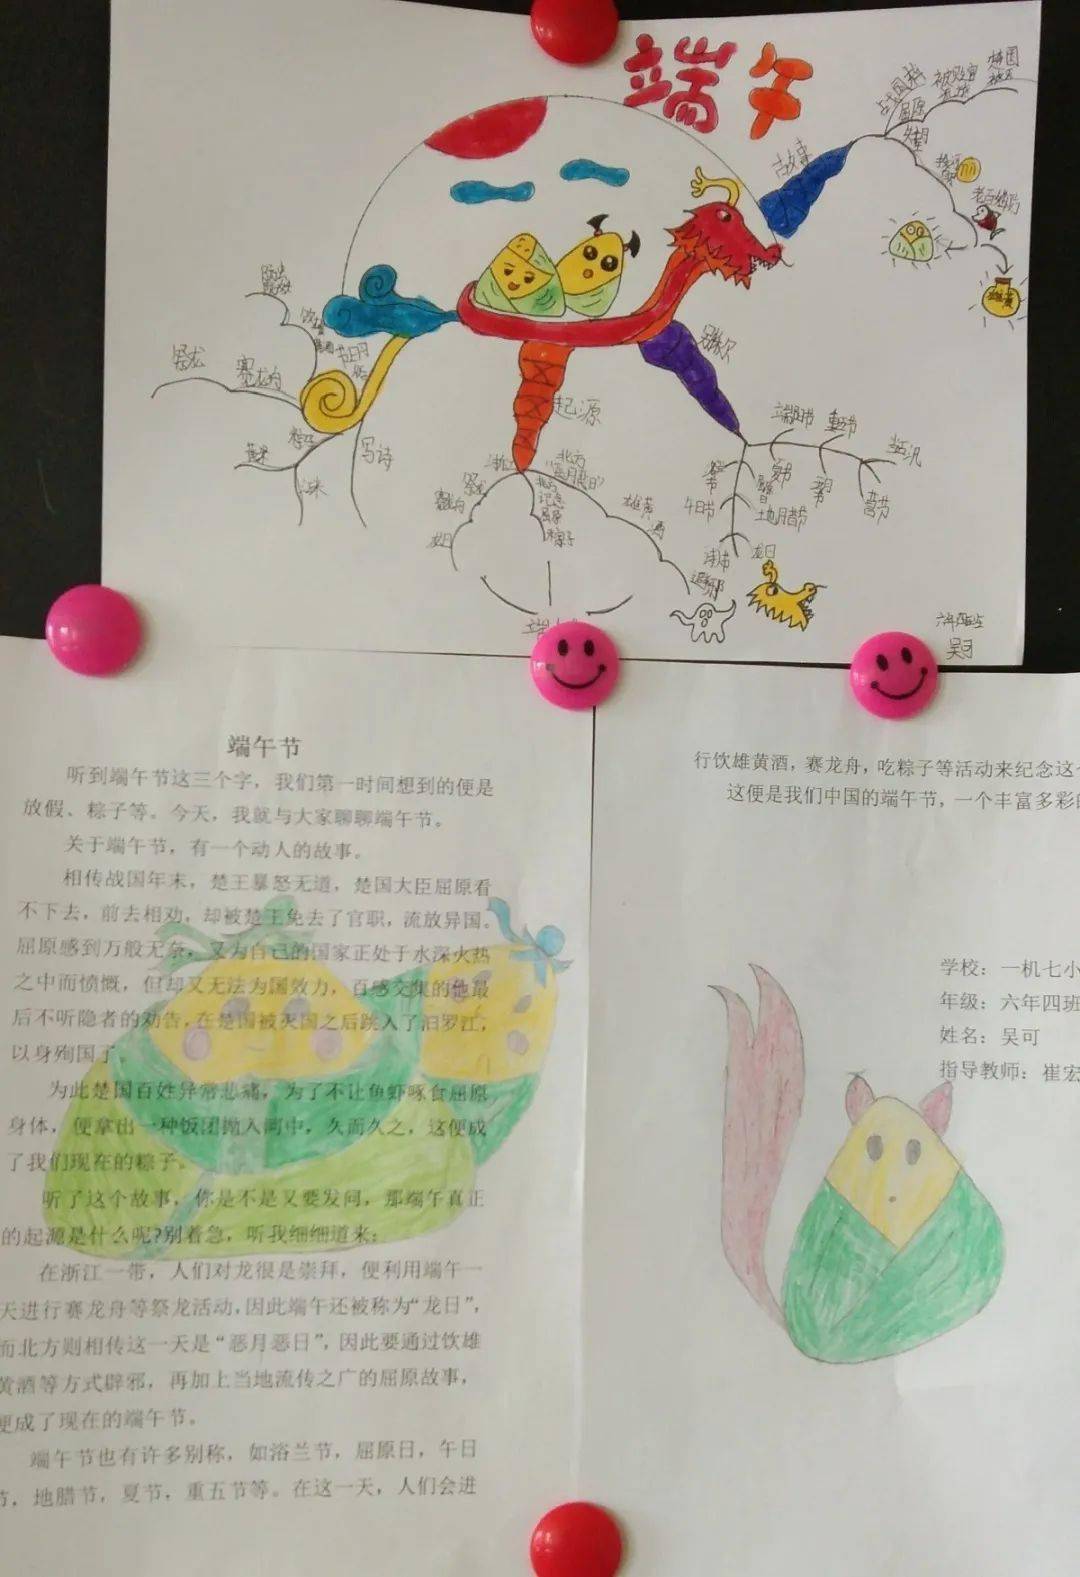 端午
故事
战国时
屈原
别称
起源
祭龙
赛龙舟
写诗
北方
"恶月恶日"
雄黄
酒
端阳节
重五节
夏节
龙日
粽子
吴可
端午节
听到端午节这三个字，我们第一时间想到的便是
放假、粽子等。今天，我就与大家聊聊端午节。
关于端午节，有一个动人的故事。
相传战国年末，楚王暴怒无道，楚国大臣屈原看
不下去，前去相劝，却被楚王免去了官职，流放异国。
屈原感到万般无奈，又为自己的国家正处于水深火热
之中而愤慨，但却又无法为国效力，百感交集的他最
后不听隐者的劝告，在楚国被灭国之后跳入了汨罗江，
以身殉国了。
为此楚国百姓异常悲痛，为了不让鱼虾啄食屈原
身体，便拿出一种饭团抛入河中，久而久之，这便成
了我们现在的粽子。
听了这个故事，你是不是又要发问，那端午真正
的起源是什么呢?别着急，听我细细道来：
在浙江一带，人们对龙很是崇拜，便利用端午一
天进行赛龙舟等祭龙活动，因此端午还被称为“龙日”，
而北方则相传这一天是“恶月恶日”，因此要通过饮雄
黄酒等方式辟邪，再加上当地流传之广的屈原故事，
便成了现在的端午节。
端午节也有许多别称，如浴兰节，屈原日，午日
节，地腊节，夏节，重五节等。在这一天，人们会进
行饮雄黄酒，赛龙舟，吃粽子等活动来纪念这
这便是我们中国的端午节，一个丰富多彩的
学校：一机七小
年级：六年四班
姓名：吴可
指导教师：崔宏